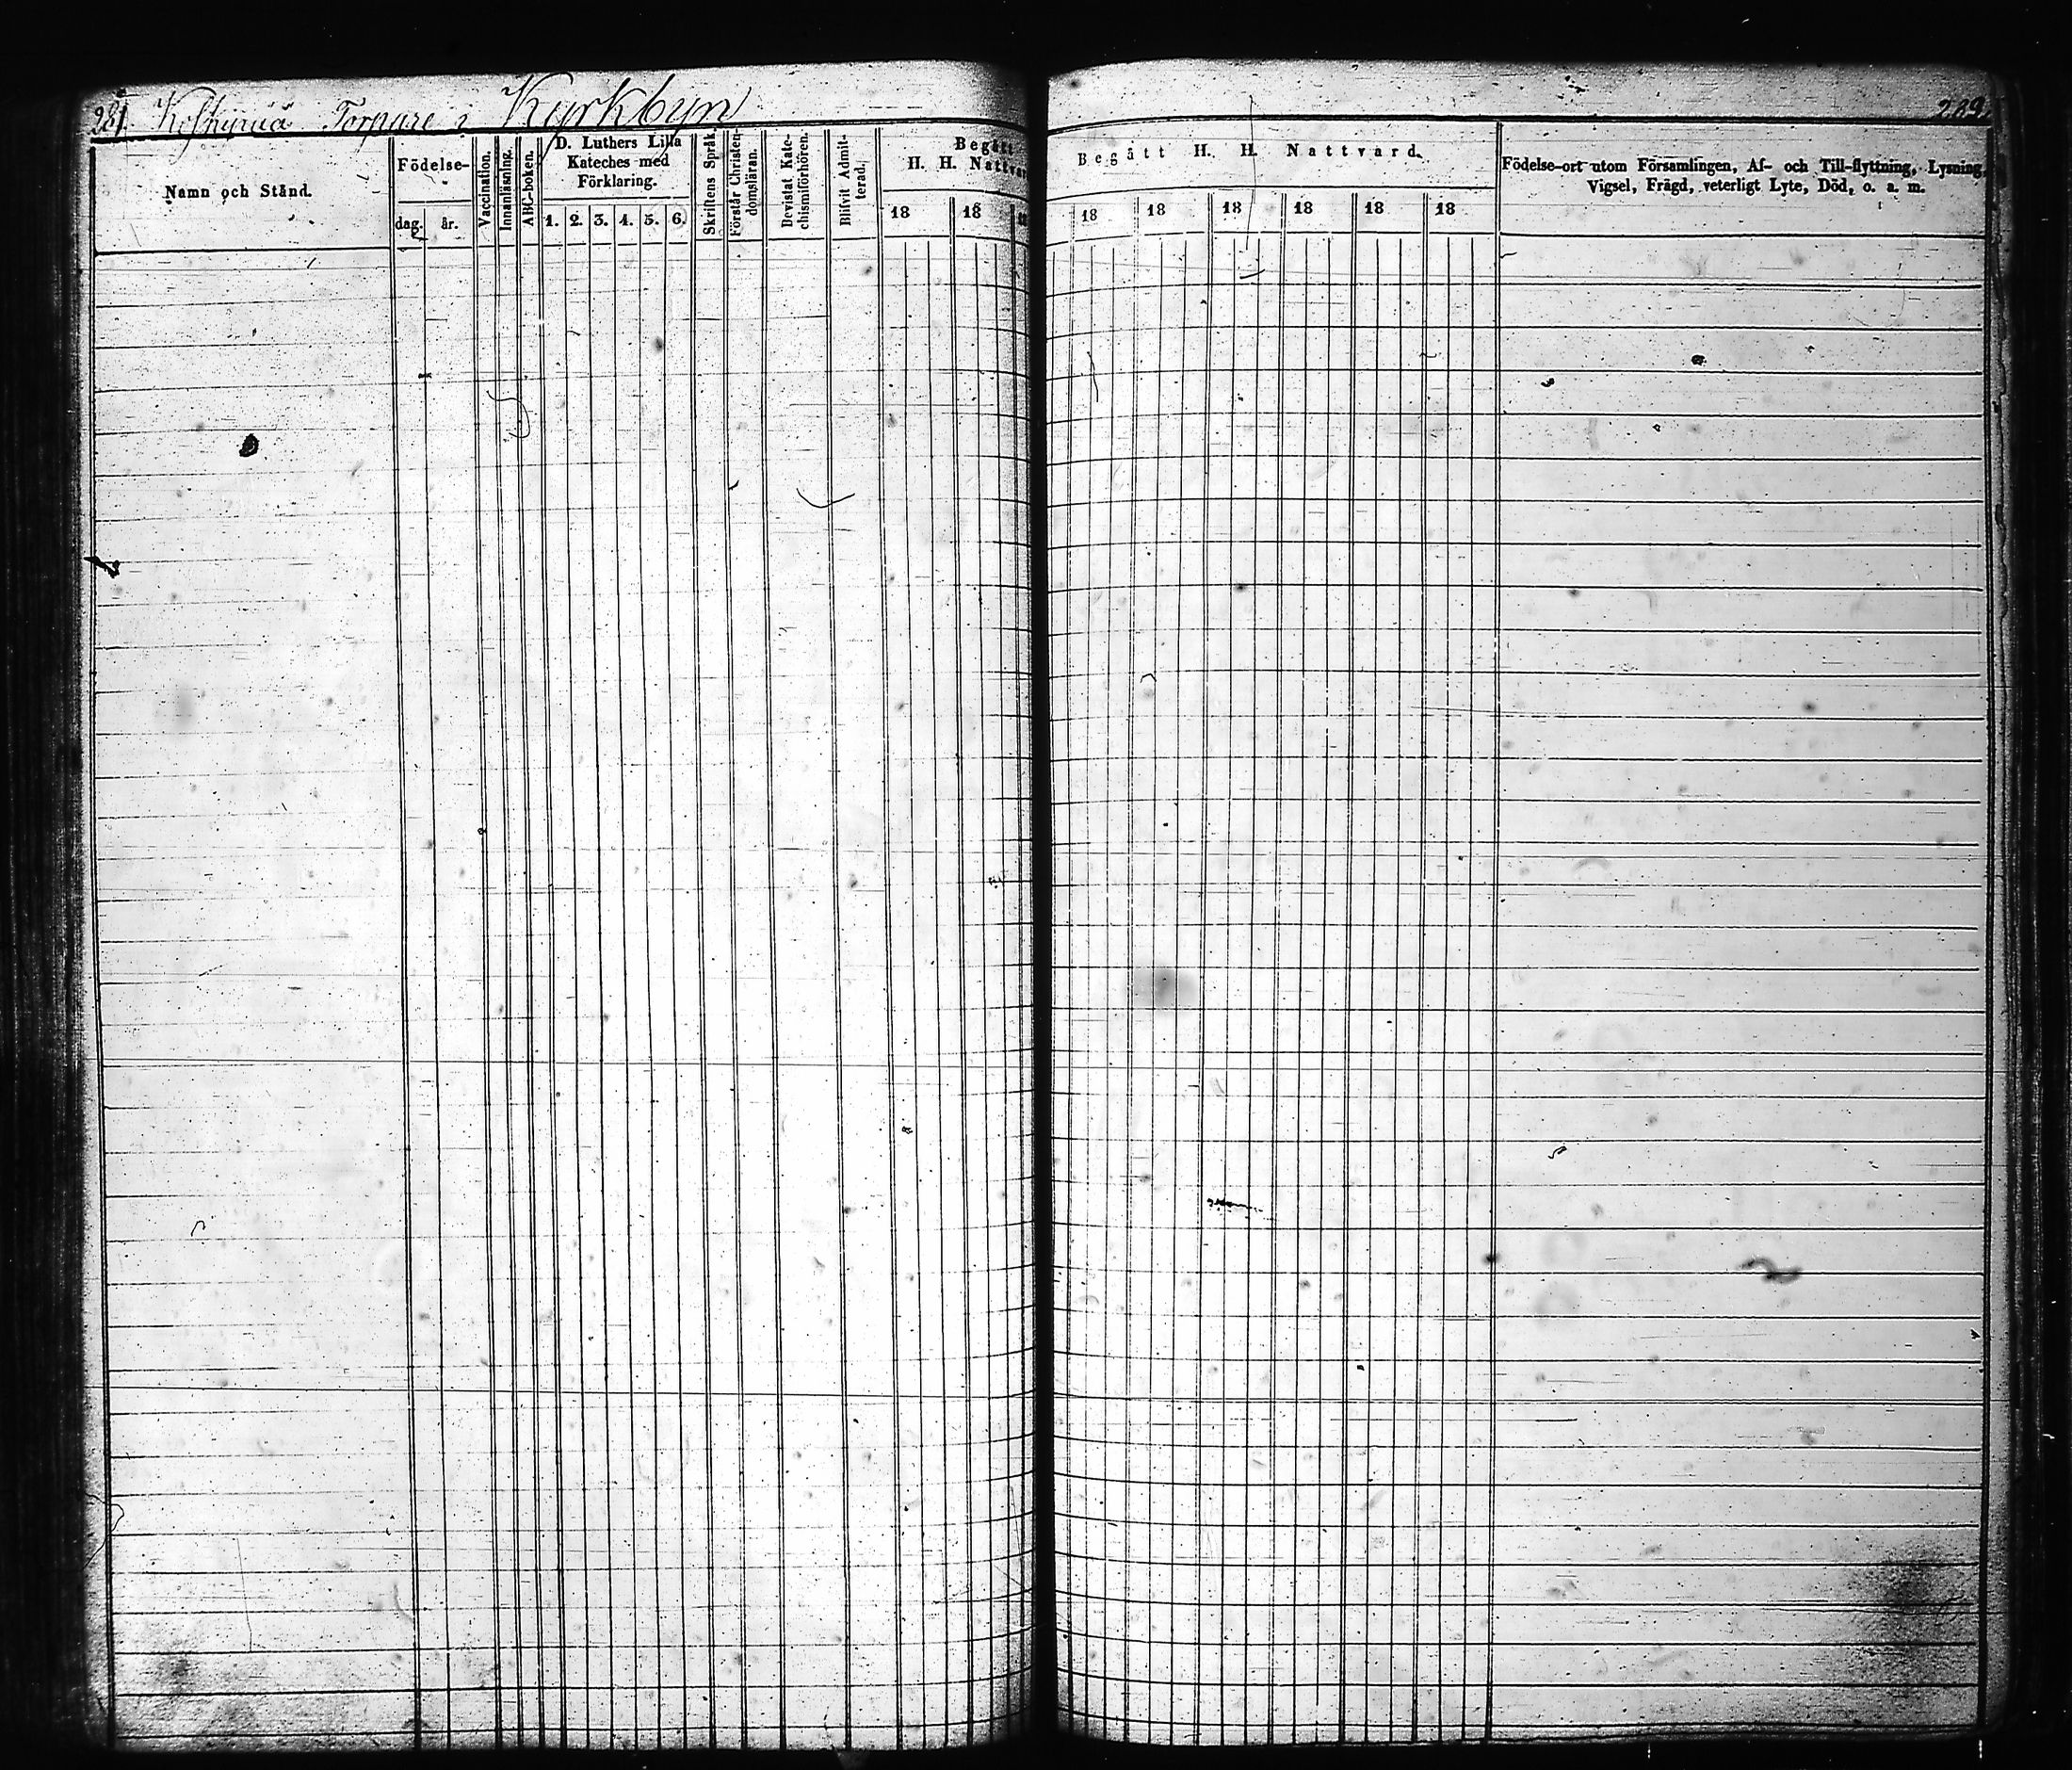 281 Torpare i Kyrkbyn
Namn och Stånd.
Födelse-
dag. år.
Vaccination.
Innanläsning.
ABC-boken.
D. Luthers Lilla
Kateches med
Förklaring.
1. 2. 3. 4. 5. 6.
Skriftens Språk.
Förstår Christen-
domsläran.
Bevistat Kate-
chismiförhören.
Blifvit Admit-
terad.
Begått
H. H. Nattvard
18 18
Begått H. H. Nattvard.
18 18 18 18 18 18
Födelse-ort utom Församlingen, Af- och Till-flyttning, Lysning,
Vigsel, Frägd, veterligt Lyte, Död, o. a. m.